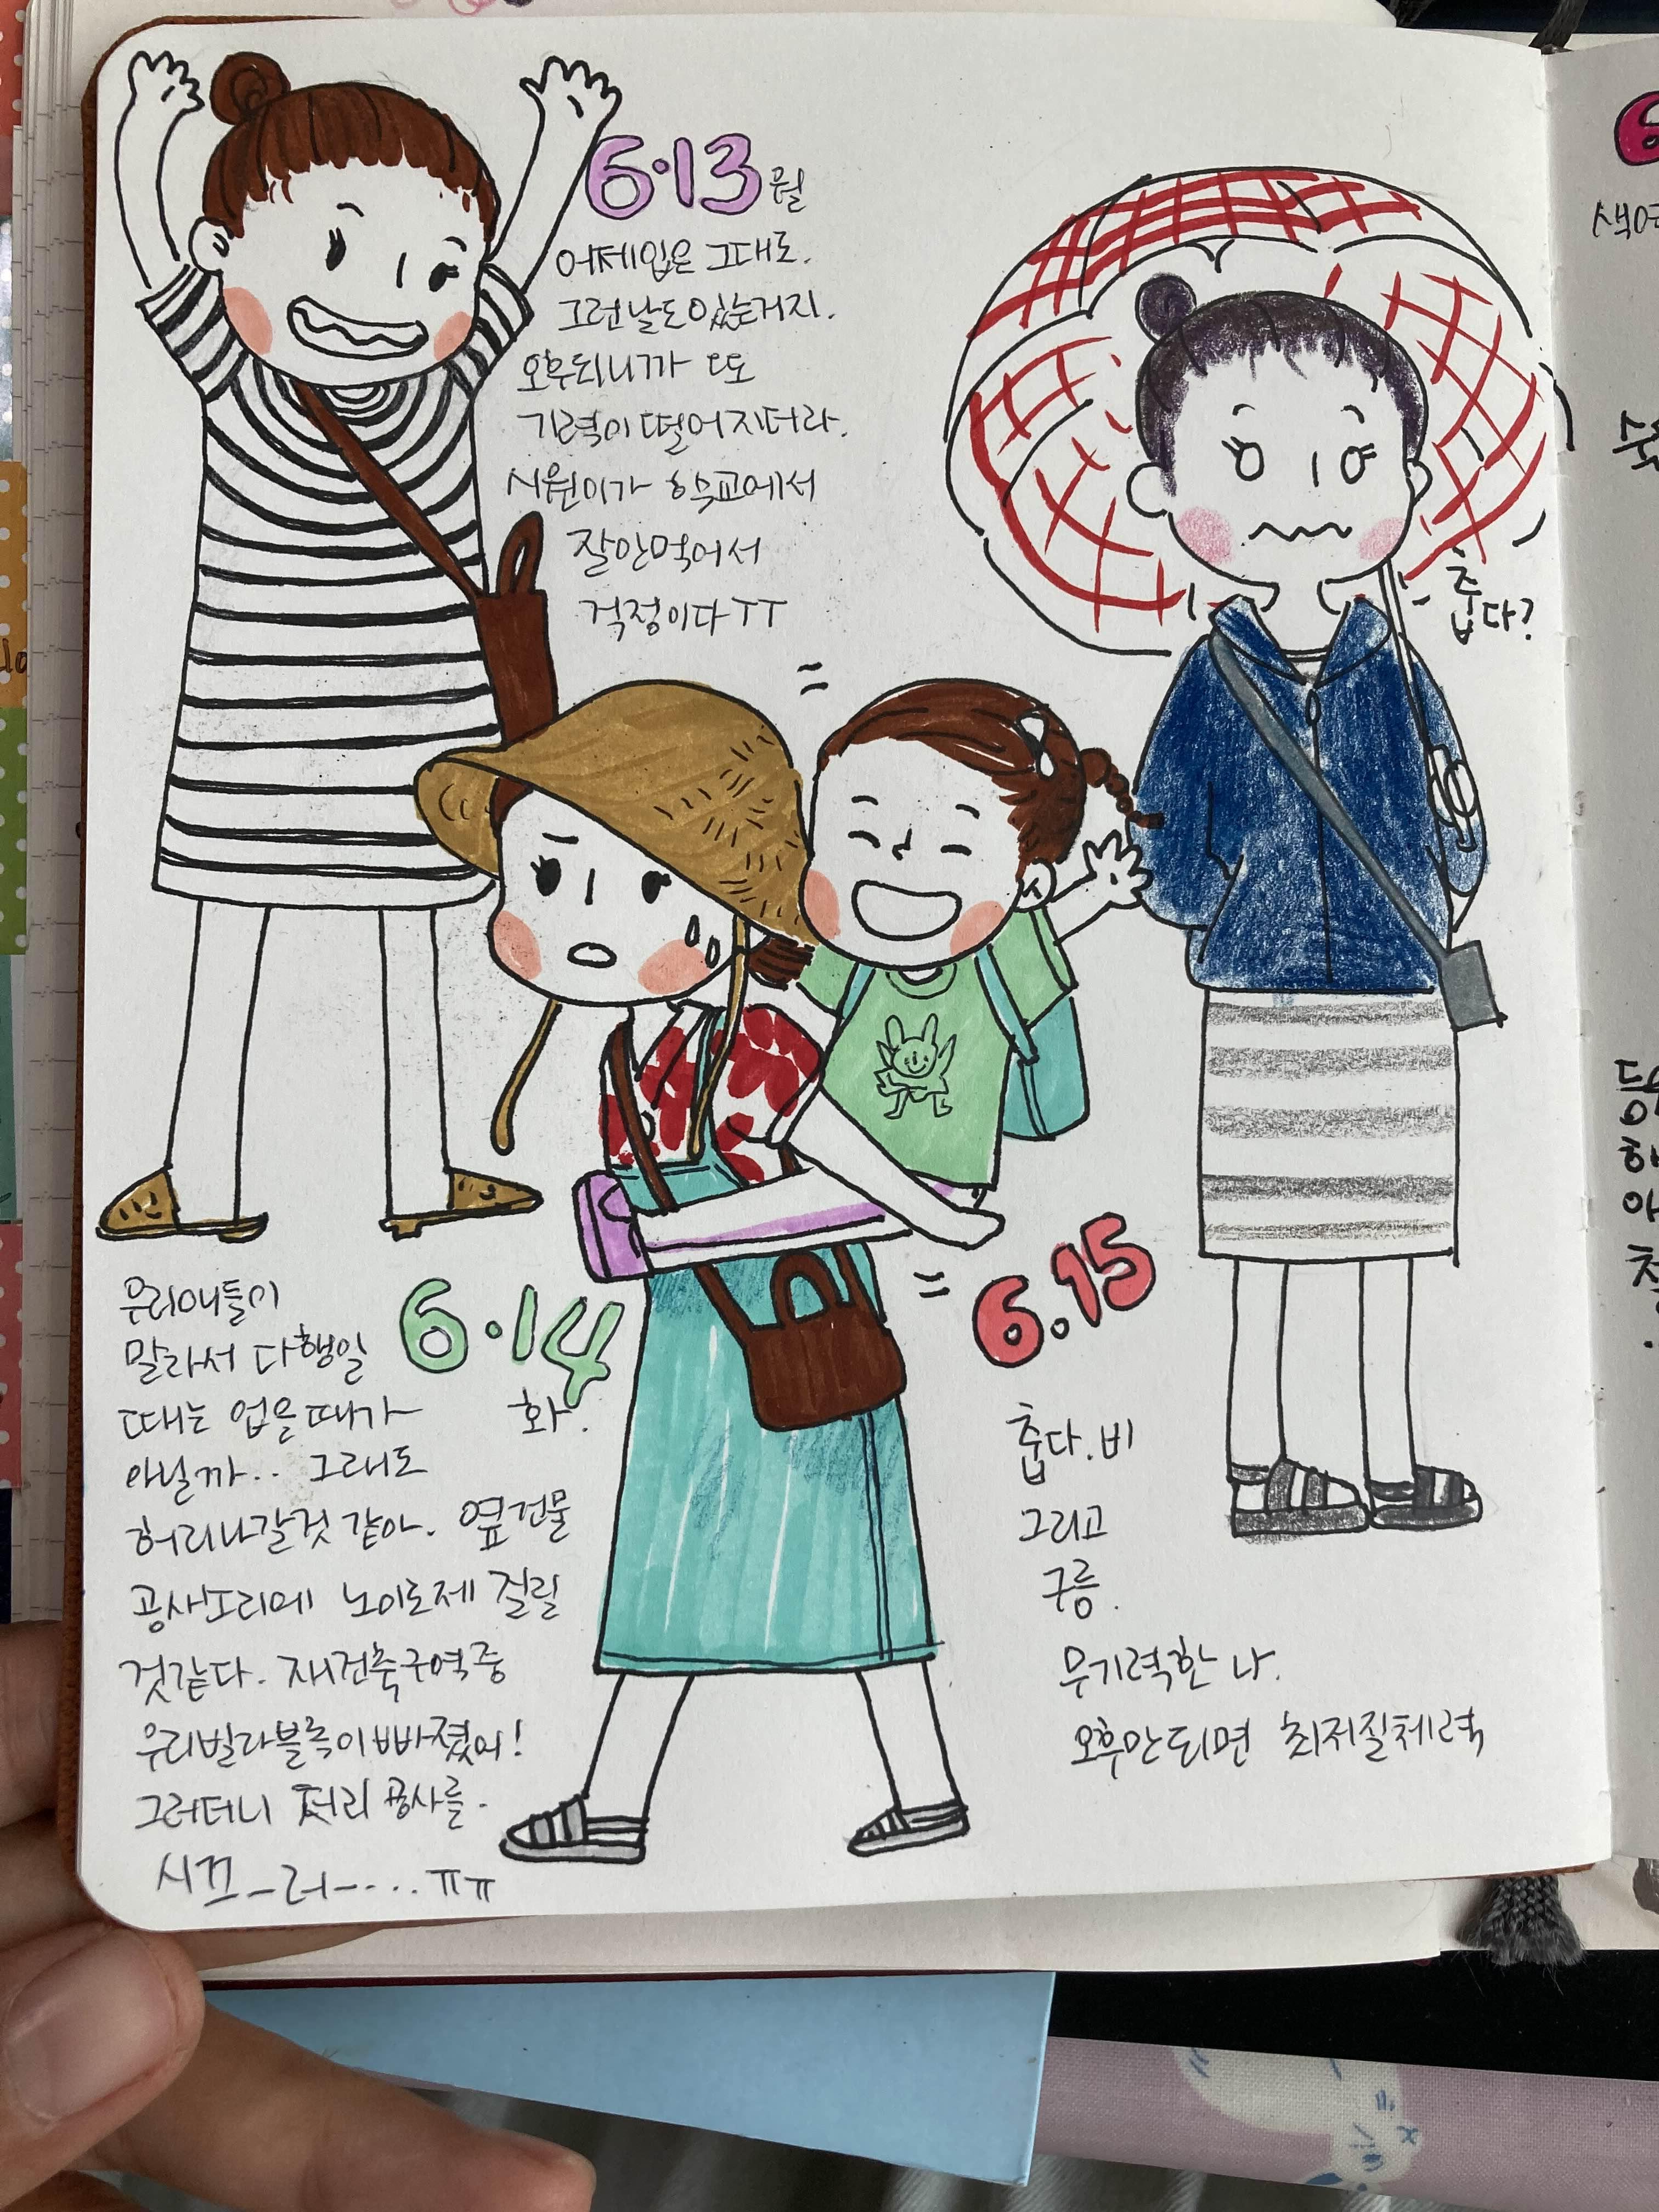 6.13 월
어제입은 그대로.
그런날도있는거지.
오후되니까 또
기력이떨어지더라.
시원이가 학교에서
잘안먹어서
걱정이다TT
춥
다?
6.14
화.
우리애들이
말라서 다행일
때는 업을때가
아닐까.. 그래도
허리나갈것 같아. 옆건물
공사소리에 노이로제 걸릴
것같다. 재건축구역중
우리빌라블록이빠졌어!
그러더니 저리 공사를.
시끄_러-... ㅠㅠ
6.15
춥다. 비
그리고
구름.
무기력한 나.
오후만되면 최저질체력